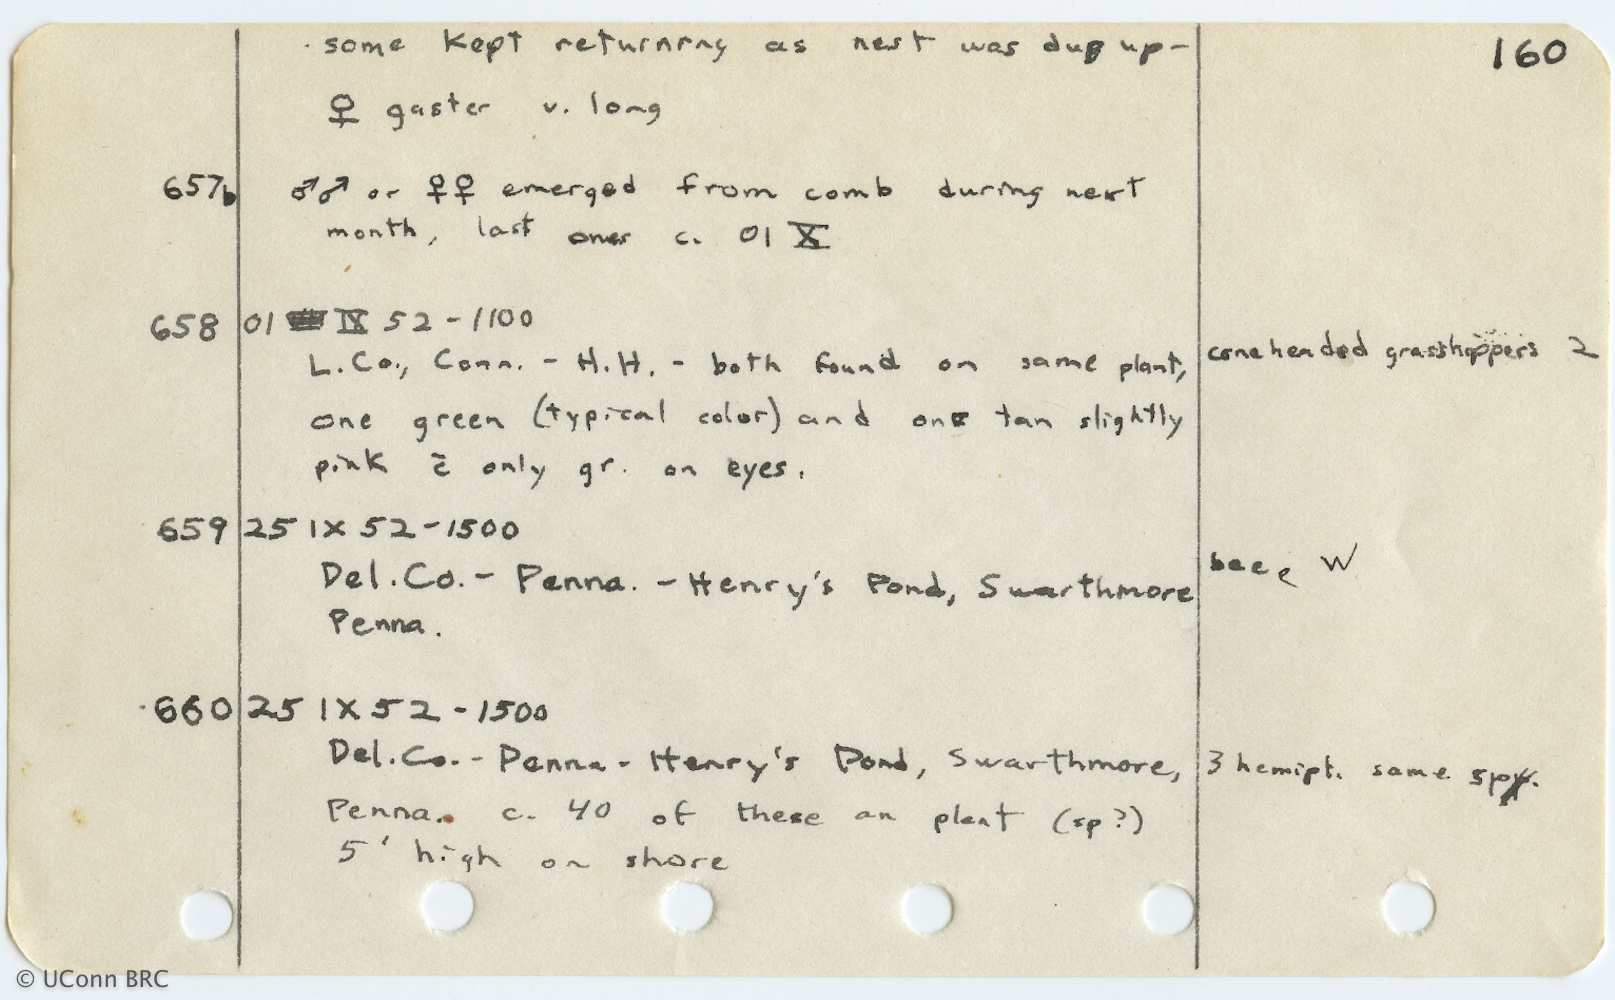 160
some kept returning as nest was dug up-
♀ gaster v. long
657b ♂♂ or ♀♀ emerged from comb during next
month, last ones c. 01 X
658 01 IX 52-1100
L.Co., Conn. - H.H. - both found on same plant, coneheaded grasshoppers 2
one green (typical color) and one tan slightly
pink c̄ only gr. on eyes.
659 25 IX 52-1500
Del.Co.- Penna. - Henry's Pond, Swarthmore W
Penna.
660 25 IX 52-1500
Del.Co.- Penna- Henry's Pond, Swarthmore, 3 hemipt. same sp.
Penna. c. 40 of these on plant (sp?)
5' high on shore
© UConn BRC